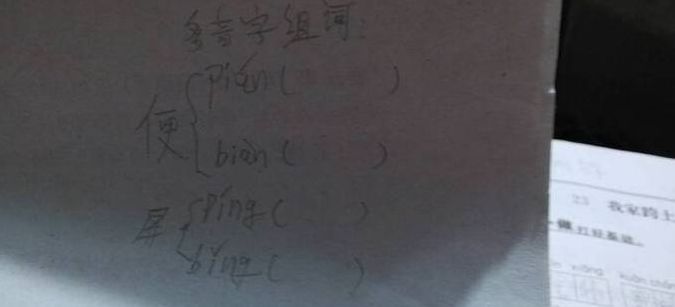 多音字组词:
便{pián(    )
bian(    )
屏{píng(    )
bǐng(    )
23 我家跨上